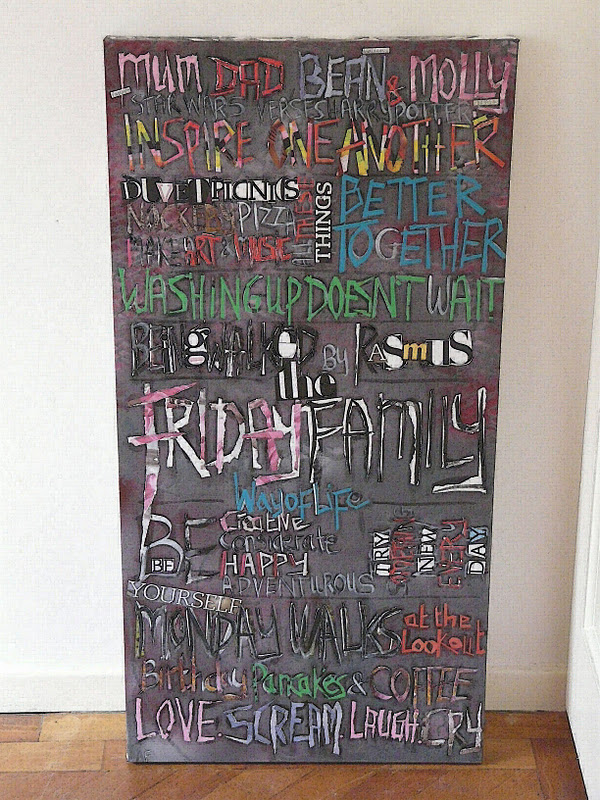 MUM DAD BEAN & MOLLY
STAR WARS VERSES HARRY POTTER
INSPIRE ONE ANOTHER
DUVET PICNICS
PIZZA
MAKE ART & MUSIC
THINGS
BETTER
TOGETHER
WASHING UP DOESNT WAIT
BEING WALKED BY RASMUS
the
FRIDAY FAMILY
Way of Life
BE
BE
YOURSELF
Creative
Considerate
HAPPY
ADVENTUROUS
TRY
NEW
EVERY
DAY
MONDAY WALKS
at the
Lookout
Birthday Pancakes & COFFEE
LOVE. SCREAM. LAUGH. CRY